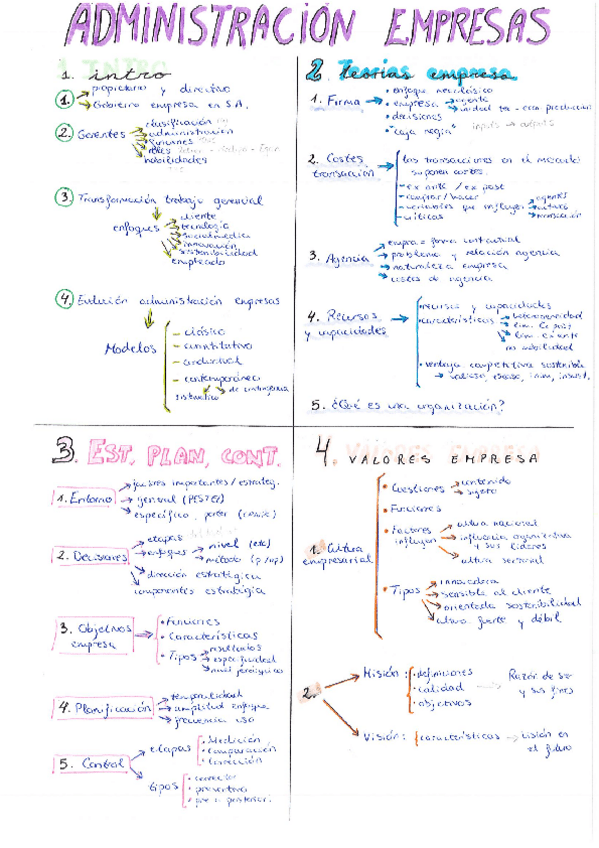 ADMINISTRACIÓN EMPRESAS
1. intro
1. propietario y directivo
Gobierno empresa en S.A.
2. Gerentes
clasificación
administración
funciones
roles
habilidades
3. Transformación trabajo gerencial
enfoques
cliente
tecnología
social media
innovación
sostenibilidad
empleado
4. Evolución administración empresas
Modelos
- clásico
- cuantitativo
- conductual
- contemporáneo
sistemático de contingencia
2. Teorías empresa
1. Firma
• enfoque neoclásico
• empresa agente
unidad eco. producción
• decisiones
• "caja negra" inputs → outputs
2. Costes transacción
las transacciones en el mercado
suponen costes
- ex ante / ex post
- comprar / hacer
- variables que influyen
agentes
transacción
- críticas
3. Agencia
empresa = forma contractual
problema y relación agencia
naturaleza empresa
costes de agencia
4. Recursos y capacidades
• recursos y capacidades
• características
heterogeneidad
no movilidad
• ventaja competitiva sostenible
→ valioso, escaso, inim, insust.
5. ¿Qué es una organización?
3. EST, PLAN, CONT.
1. Entorno
factores importantes / estrateg.
general (PESTEL)
específico, porter
2. Decisiones
etapas
enfoques
nivel (etc)
método
dirección estratégica
componentes estratégia
3. Objetivos empresa
• Funciones
• Características
• Tipos
resultados
especificidad
nivel jerárquico
4. Planificación
temporalidad
amplitud enfoque
frecuencia uso
5. Control
etapas
• Medición
• Comparación
• Corrección
tipos
• corrector
• preventivo
4. VALORES EMPRESA
1. Cultura empresarial
• Cuestiones
contenido
sujeto
• Funciones
• Factores influyen
cultura nacional
influencia organizativa
y sus líderes
cultura sectorial
• Tipos
innovadora
sensible al cliente
orientada sostenibilidad
cultura fuerte y débil
2.
Misión:
• definiciones
• calidad
• objetivos
Razón de ser
y sus fines
Visión:
características → visión en
el futuro